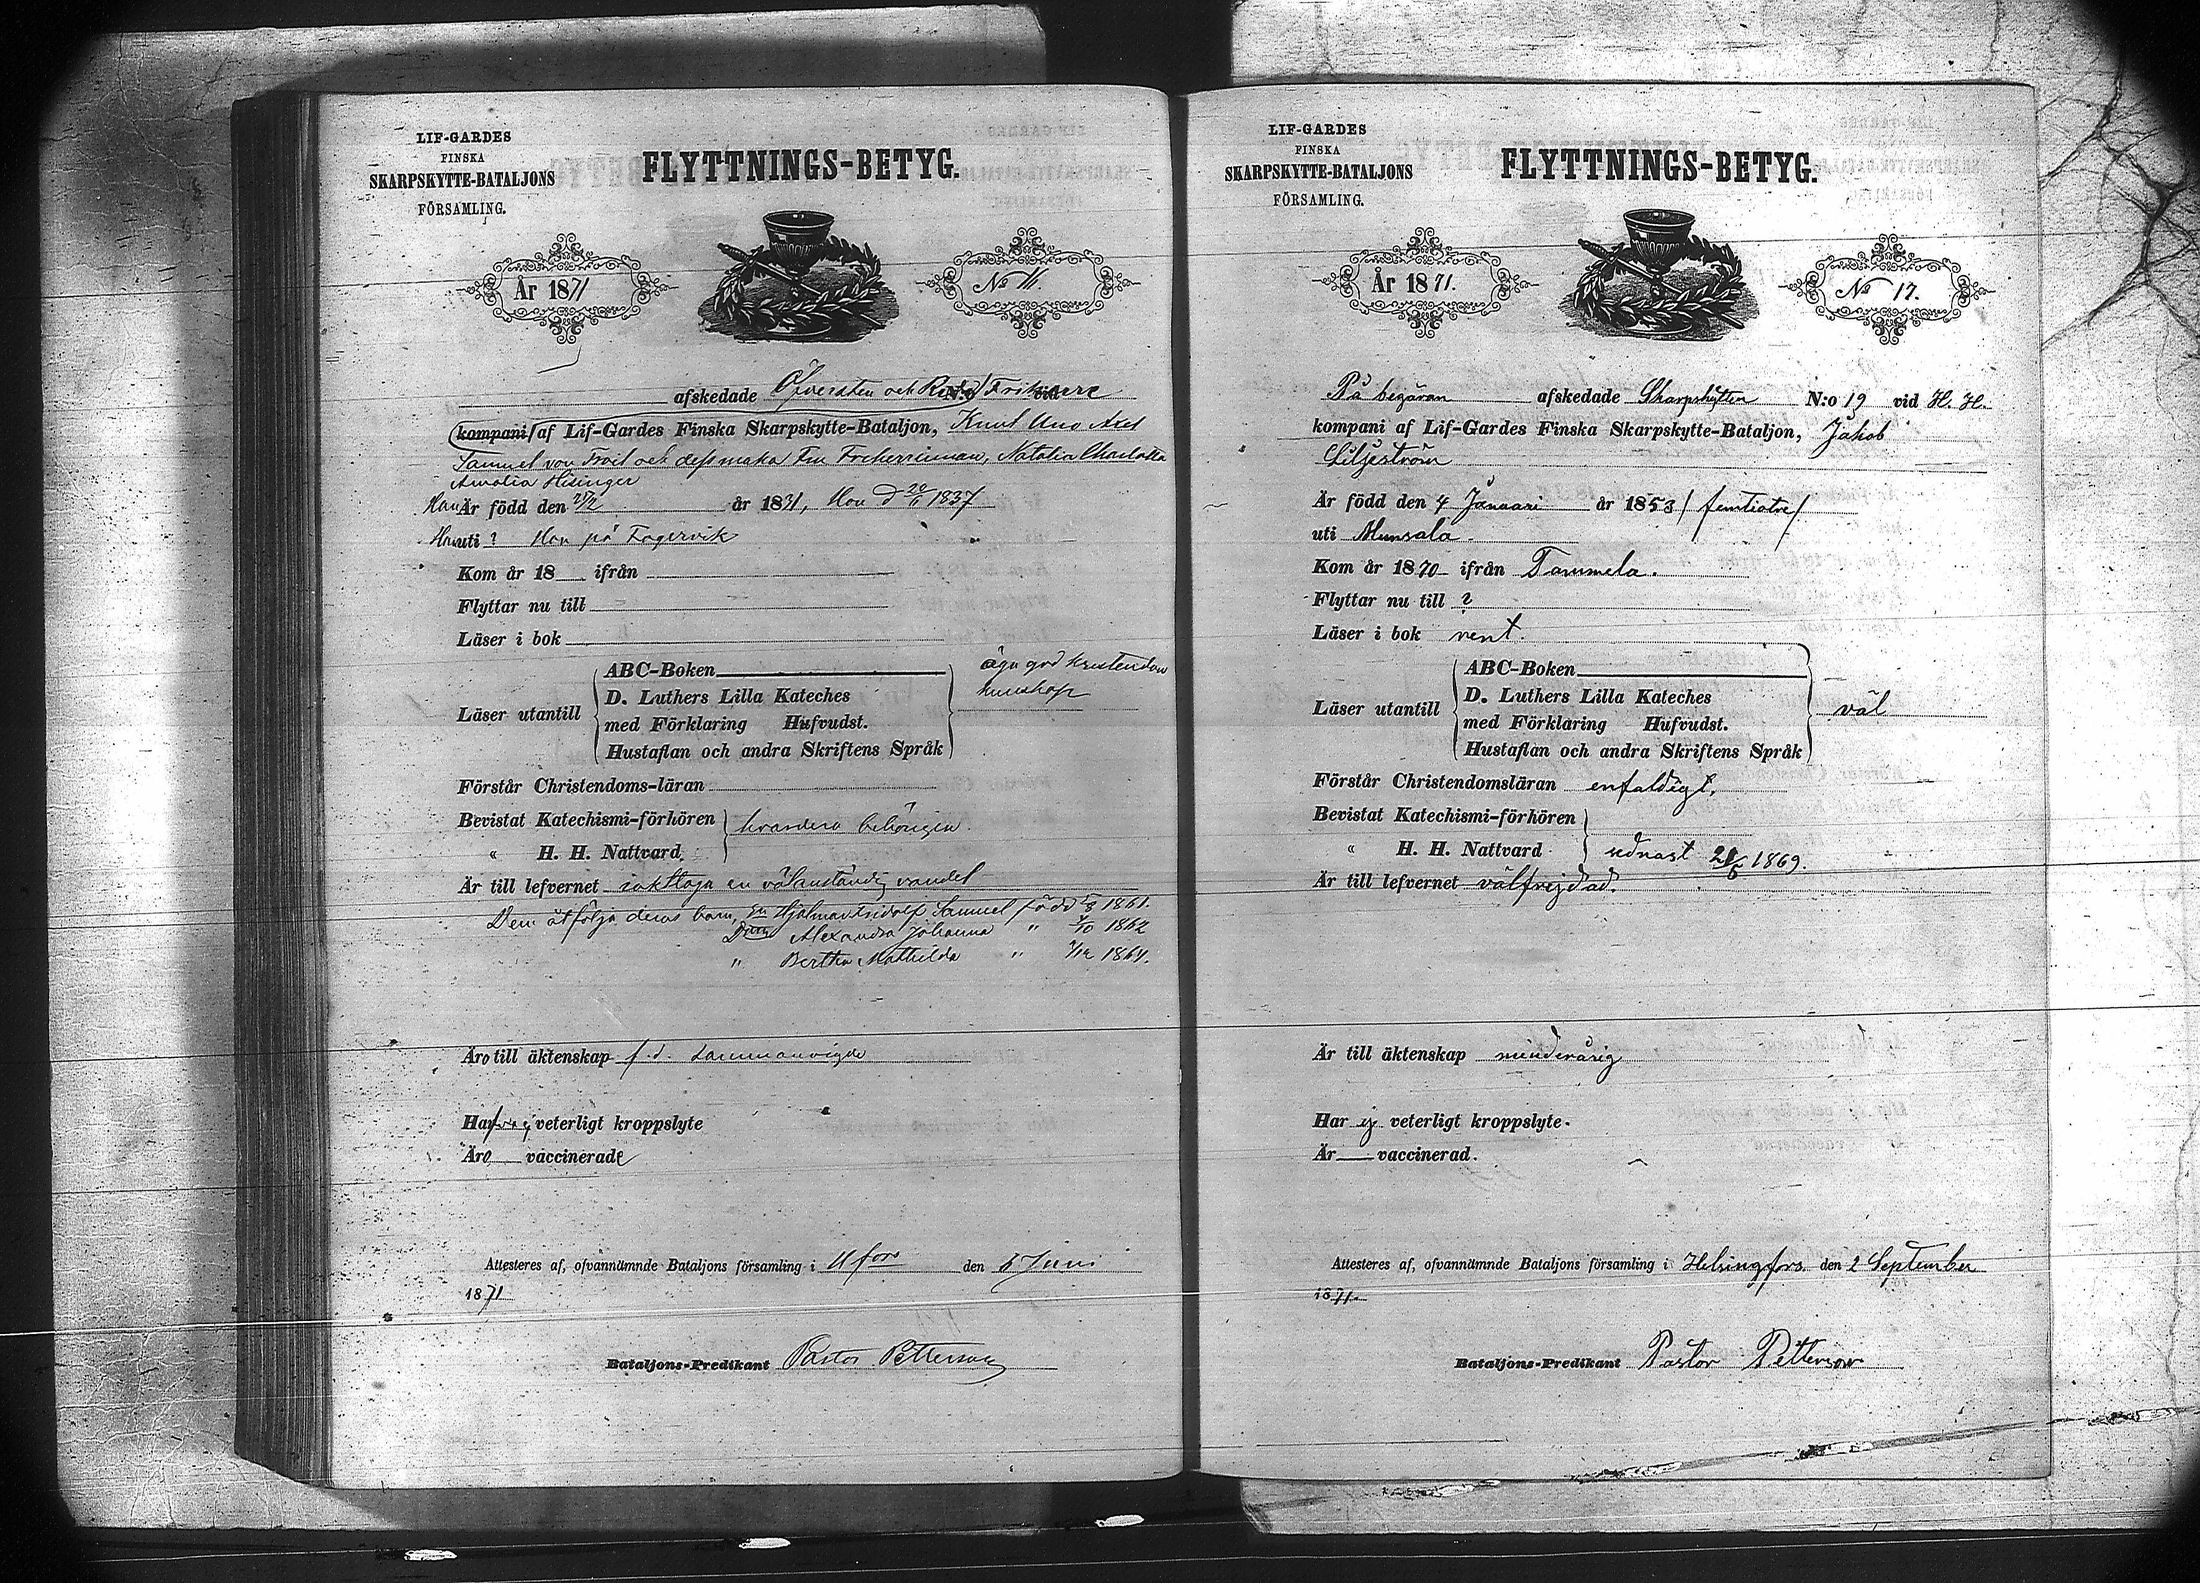 LIF-GARDES
FINSKA
SKARPSKYTTE-BATALJONS
FÖRSAMLING.
FLYTTNINGS-BETYG.
År 1871
No 16.
afskedade Öfversten och Ridd. Friherre
kompani af Lif-Gardes Finska Skarpskytte-Bataljon, Knut Uno Axel
Samuel von Troil och dess maka Fru Friherrinnan, Natalia Charlotta
Amalia Hisinger
Han Är född den år 1831, Hon d 1837
Han uti ? Hon på Fagervik
Kom år 18 ifrån
Flyttar nu till
Läser i bok
Läser utantill
ABC-Boken
D. Luthers Lilla Kateches
med Förklaring Hufvudst.
Hustaflan och andra Skriftens Språk
äga god kristendoms
kunskap
Förstår Christendoms-läran
Bevistat Katechismi-förhören
" H. H. Nattvard
hvardera behörigen
Är till lefvernet iakttaga en välanständig vandel
Dem åtfölja deras barn, Hjalmar Fridolf Samuel född 1861.
Alexandra Johanna " 1862
" Bertha Mathilda " 1864.
Äro till äktenskap f. d. sammanvigde
Hafva ej veterligt kroppslyte
Äro vaccinerade
Attesteres af, ofvannämnde Bataljons församling i Hfors den 6 Juni
1871
Bataljons-Predikant Pastor Petterson
LIF-GARDES
FINSKA
SKARPSKYTTE-BATALJONS
FÖRSAMLING.
FLYTTNINGS-BETYG.
År 1871.
No 17.
På begäran afskedade Skarpskytten N:o 19 vid H. H.
kompani af Lif-Gardes Finska Skarpskytte-Bataljon, Jakob
Liljeström
Är född den 4 Januari år 1853 / femtiotre /
uti Munsala.
Kom år 1870 ifrån Tammela.
Flyttar nu till ?
Läser i bok rent.
Läser utantill
ABC-Boken
D. Luthers Lilla Kateches
med Förklaring Hufvudst.
Hustaflan och andra Skriftens Språk
väl
Förstår Christendomsläran enfaldigt.
Bevistat Katechismi-förhören
" H. H. Nattvard
sednast 1869.
Är till lefvernet välfrejdad.
Är till äktenskap minderårig
Har ej veterligt kroppslyte.
Är vaccinerad.
Attesteres af, ofvannämnde Bataljons församling i Helsingfors den 2 September
1871.
Bataljons-Predikant Pastor Petterson